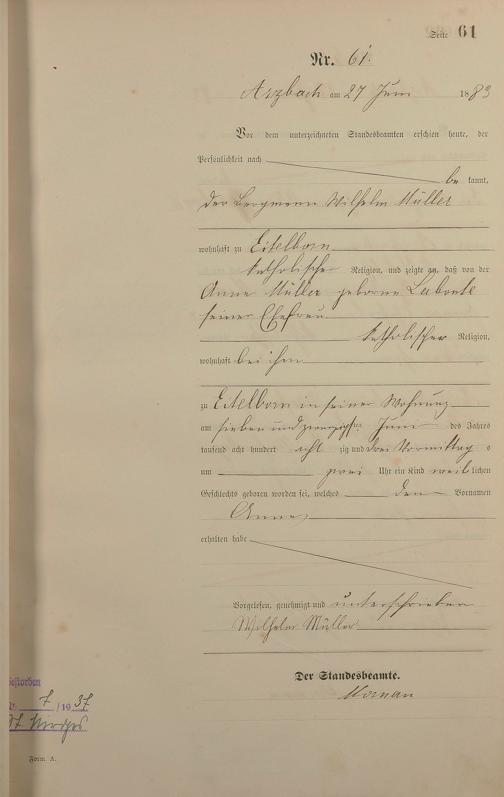 Seite 61
Nr. 61.
Arzbach am 27 Juni 1883
Vor dem unterzeichneten Standesbeamten erschien heute, der
Persönlichkeit nach
be kannt,
der Bergmann Wilhelm Müller
wohnhaft zu Eitelborn
katholischer Religion, und zeigte an, daß von der
Anna Müller geborne Labonte
seiner Ehefrau
katholischer Religion,
wohnhaft bei ihm
zu Eitelborn in seiner Wohnung
am sieben und zwanzigsten Juni des Jahres
tausend acht hundert acht zig und drei Vormittags
um zwei Uhr ein Kind weib lichen
Geschlechts geboren worden sei, welches den Vornamen
Anna
erhalten habe
Vorgelesen, genehmigt und unterschrieben
Wilhelm Müller
Der Standesbeamte.
Gestorben
7/1937
Form. A.